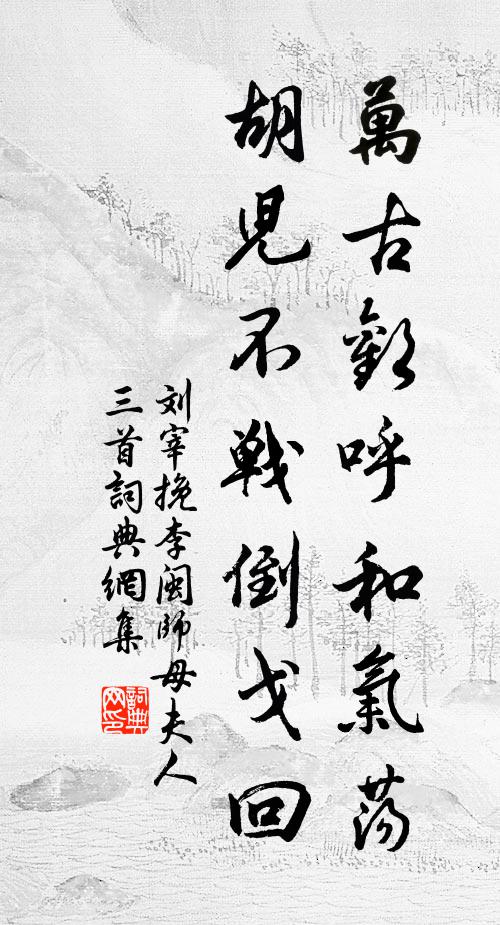 萬古歡呼和氣蕩
胡兒不戰倒戈回
刘宰挽李闽師母夫人
三首詞典網集
詞典网印